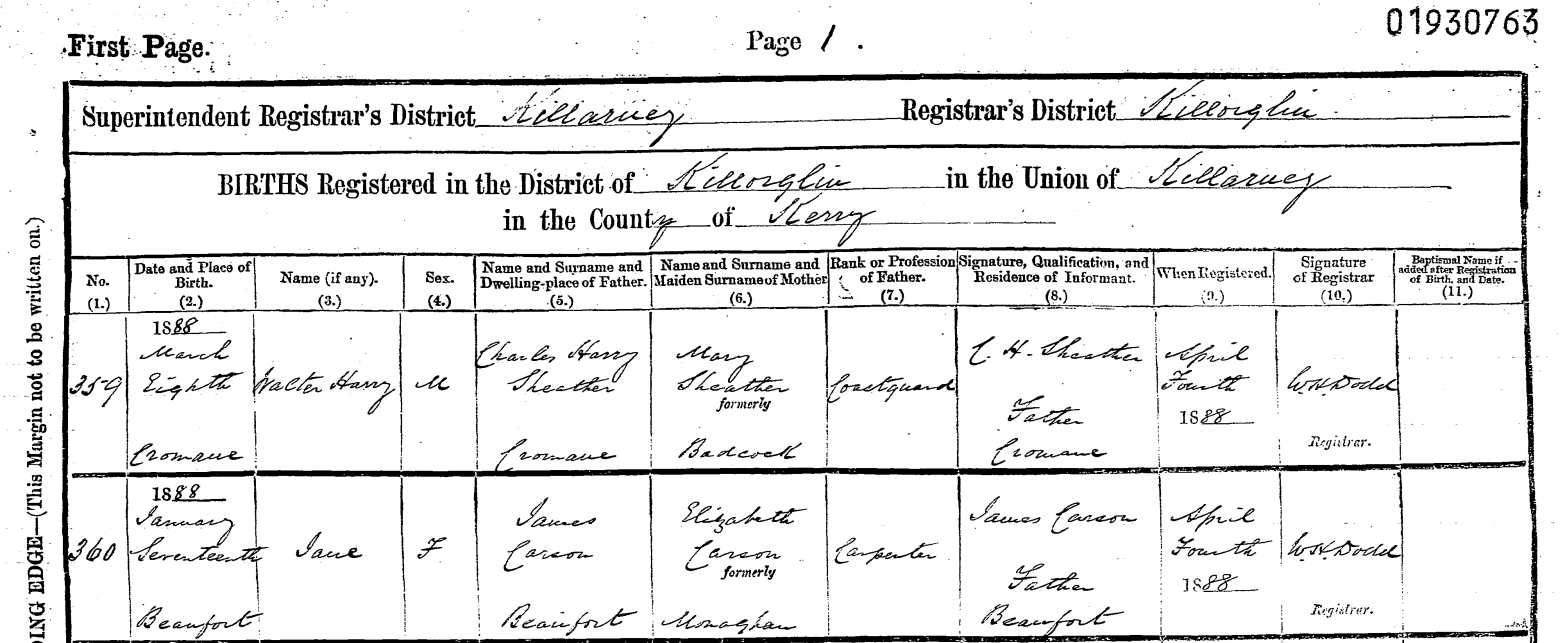 01930763
First Page.
Page 1.
Superintendent Registrar's District Killarney Registrar's District Killorglin
BIRTHS Registered in the District of Killorglin in the Union of Killarney
in the County of Kerry
No. (1.)
Date and Place of Birth. (2.)
Name (if any). (3.)
Sex. (4.)
Name and Surname and Dwelling-place of Father. (5.)
Name and Surname and Maiden Surname of Mother (6.)
Rank or Profession of Father. (7.)
Signature, Qualification, and Residence of Informant. (8.)
When Registered. (9.)
Signature of Registrar (10.)
Baptismal Name if added after Registration of Birth, and Date. (11.)
359
1888
March
Eighth
Cromane
Walter Harry
M
Charles Harry
Sheather
Cromane
Mary
Sheather
formerly
Badcock
Coastguard
C. H. Sheather
Father
Cromane
April
Fourth
1888
W.H. Dodd
Registrar.
360
1888
January
Seventeenth
Beaufort
Jane
F
James
Carson
Beaufort
Elizabeth
Carson
formerly
Monaghan
Carpenter
James Carson
Father
Beaufort
April
Fourth
1888
W.H. Dodd
Registrar.
DING EDGE—(This Margin not to be written on.)